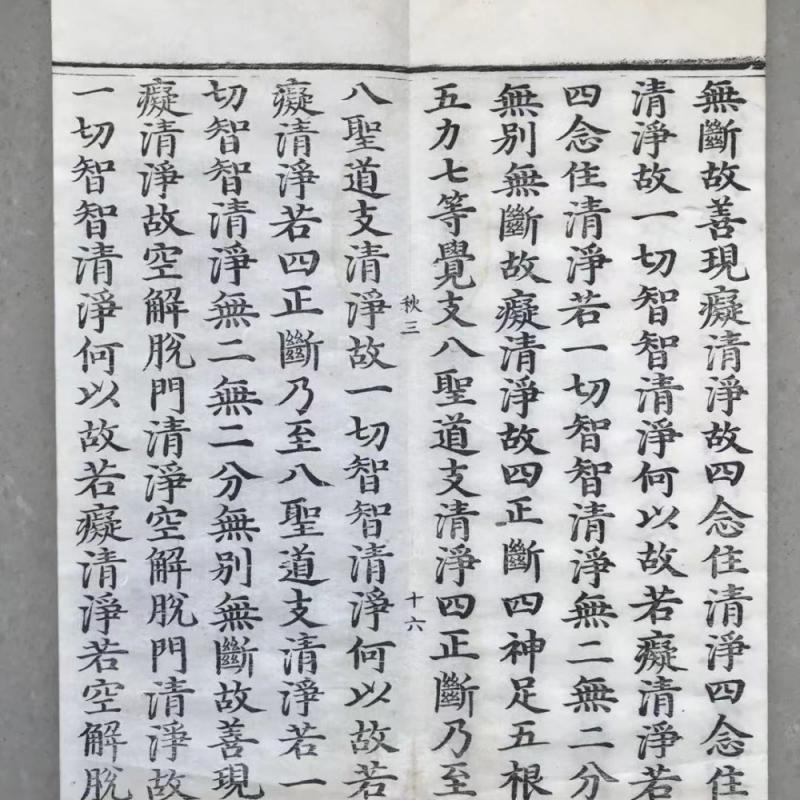 無斷故善現癡清淨故四念住清淨四念住
清淨故一切智智清淨何以故若癡清淨若
四念住清淨若一切智智清淨無二無二分
無別無斷故癡清淨故四正斷四神足五根
五力七等覺支八聖道支清淨四正斷乃至
秋三
十六
八聖道支清淨故一切智智清淨何以故若
癡清淨若四正斷乃至八聖道支清淨若一
切智智清淨無二無二分無別無斷故善現
癡清淨故空解脫門清淨空解脫門清淨故
一切智智清淨何以故若癡清淨若空解脫